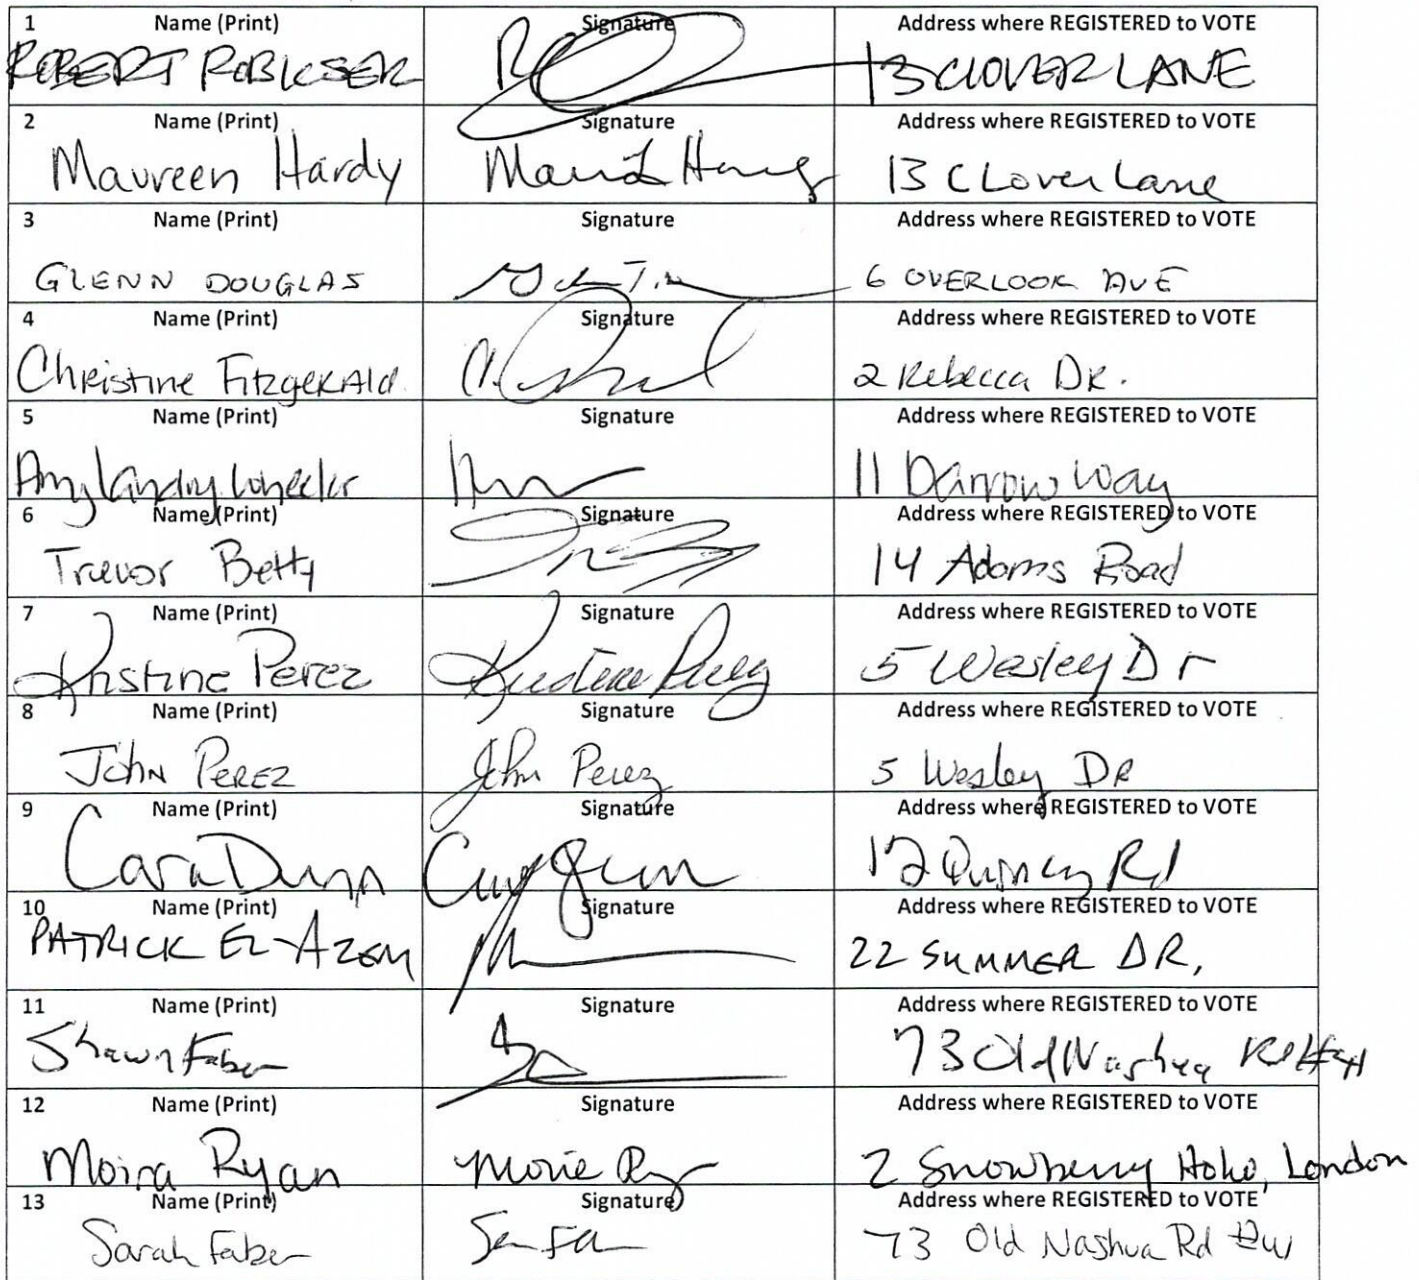 1 Name (Print) Signature Address where REGISTERED to VOTE
ROBERT 13 CLOVER LANE
2 Name (Print) Signature Address where REGISTERED to VOTE
Maureen Hardy 13 Clover Lane
3 Name (Print) Signature Address where REGISTERED to VOTE
GLENN DOUGLAS 6 OVERLOOK AVE
4 Name (Print) Signature Address where REGISTERED to VOTE
Christine Fitzgerald 2 Rebecca DR.
5 Name (Print) Signature Address where REGISTERED to VOTE
Amy Landry Wheeler 11 Darrow Way
6 Name (Print) Signature Address where REGISTERED to VOTE
Trevor Betty 14 Adams Road
7 Name (Print) Signature Address where REGISTERED to VOTE
Kristine Perez Kristine Perez 5 Wesley Dr
8 Name (Print) Signature Address where REGISTERED to VOTE
John Perez John Perez 5 Wesley DR
9 Name (Print) Signature Address where REGISTERED to VOTE
Cara Dunn 12 Quincy Rd
10 Name (Print) Signature Address where REGISTERED to VOTE
PATRICK EL-AZEM 22 SUMMER DR,
11 Name (Print) Signature Address where REGISTERED to VOTE
Shawn Faber 73 Old Nashua Rd
12 Name (Print) Signature Address where REGISTERED to VOTE
Moira Ryan 2 Snowberry London
13 Name (Print) Signature Address where REGISTERED to VOTE
Sarah Faber 73 Old Nashua Rd